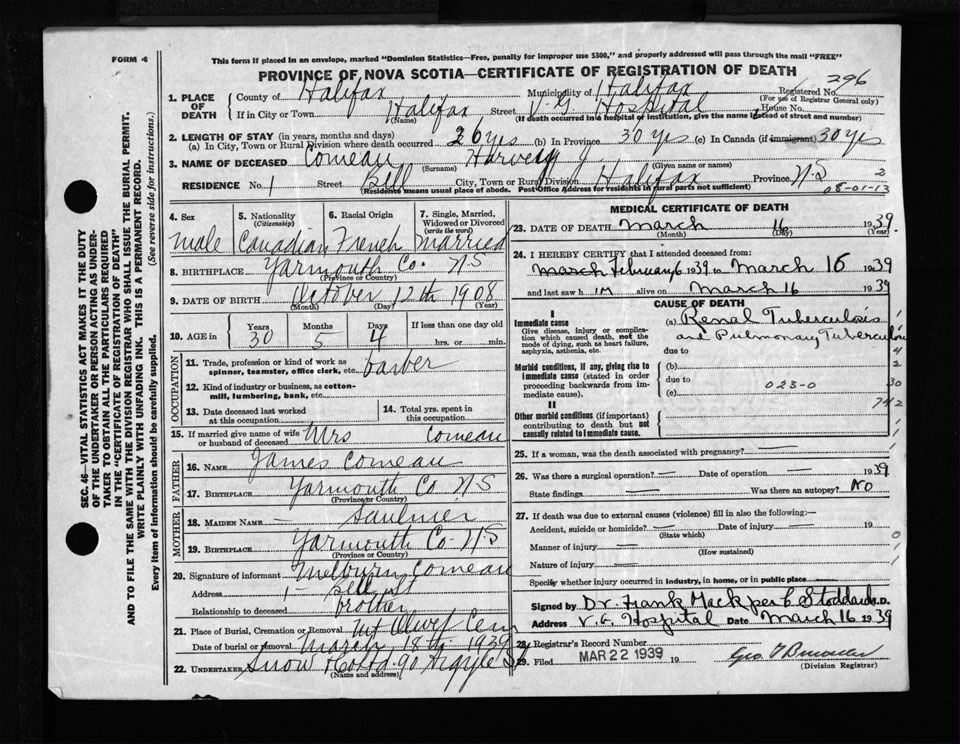 FORM 6
This form if placed in an envelope, marked "Dominion Statistics—Free, penalty for improper use $300," and properly addressed will pass through the mail "FREE"
PROVINCE OF NOVA SCOTIA—CERTIFICATE OF REGISTRATION OF DEATH
296
1. PLACE OF DEATH
County of Halifax Municipality of Halifax Registered No.
(For use of Registrar General only)
If in City or Town Halifax Street V.G. Hospital House No.
(Name) (If death occurred in a hospital or institution, give the name instead of street and number)
2. LENGTH OF STAY (in years, months and days)
(a) In City, Town or Rural Division where death occurred 26 yrs (b) In Province 30 yrs (c) In Canada (if immigrant) 30 yrs
3. NAME OF DECEASED Comeau Harvey J
(Surname) (Given name or names)
RESIDENCE No. 1 Street Bell City, Town or Rural Division Halifax Province N.S 2
(Residence means usual place of abode. Post Office Address for residents in rural parts not sufficient) 08-01-13
4. Sex male
5. Nationality (Citizenship) Canadian
6. Racial Origin French
7. Single, Married, Widowed or Divorced (write the word) Married
8. BIRTHPLACE Yarmouth Co. N S
(Province or Country)
9. DATE OF BIRTH October 12th 1908
(Month) (Day) (Year)
10. AGE in Years 30 Months 5 Days 4 If less than one day old hrs. or min.
OCCUPATION
11. Trade, profession or kind of work as spinner, teamster, office clerk, etc. barber
12. Kind of industry or business, as cotton-mill, lumbering, bank, etc.
13. Date deceased last worked at this occupation
14. Total yrs. spent in this occupation
15. If married give name of wife or husband of deceased Mrs Comeau
FATHER
16. NAME James Comeau
17. BIRTHPLACE Yarmouth Co N S
(Province or Country)
MOTHER
18. MAIDEN NAME — Saulnier
19. BIRTHPLACE Yarmouth Co N S
(Province or Country)
20. Signature of informant Melburn Comeau
Address 1 - Bell St
Relationship to deceased brother
21. Place of Burial, Cremation or Removal Mt Olivet Cem
Date of burial or removal March 18th 1939
22. UNDERTAKER Snow & Co Ltd 90 Argyle St
MEDICAL CERTIFICATE OF DEATH
23. DATE OF DEATH March 16 1939.
(Month) (Day) (Year)
24. I HEREBY CERTIFY that I attended deceased from:
March February 6 1939 to March 16 1939
and last saw h im alive on March 16 1939
CAUSE OF DEATH
I
Immediate cause
Give disease, injury or complication which caused death, not the mode of dying, such as heart failure, asphyxia, asthenia, etc.
(a) Renal Tuberculosis
and Pulmonary Tuberculosis
due to
Morbid conditions, if any, giving rise to immediate cause (stated in order proceeding backwards from immediate cause).
(b)
due to
(c)
023-0
1
4
2
30
742
II
Other morbid conditions (if important) contributing to death but not causally related to immediate cause.
25. If a woman, was the death associated with pregnancy? —
26. Was there a surgical operation? — Date of operation — 1939
State findings — Was there an autopsy? No
27. If death was due to external causes (violence) fill in also the following:—
Accident, suicide or homicide? — Date of injury — 19
(State which)
Manner of injury —
(How sustained)
Nature of injury —
Specify whether injury occurred in industry, in home, or in public place —
0
Signed by Dr. Frank Mack per C Stoddard M.D.
Address V.G. Hospital Date March 16 1939
28. Registrar's Record Number
29. Filed MAR 22 1939 19
(Division Registrar)
SEC. 46—VITAL STATISTICS ACT MAKES IT THE DUTY
OF THE UNDERTAKER OR PERSON ACTING AS UNDER-
TAKER TO OBTAIN ALL THE PARTICULARS REQUIRED
IN THE "CERTIFICATE OF REGISTRATION OF DEATH"
AND TO FILE THE SAME WITH THE DIVISION REGISTRAR WHO SHALL ISSUE THE BURIAL PERMIT.
WRITE PLAINLY WITH UNFADING INK. THIS IS A PERMANENT RECORD.
Every item of information should be carefully supplied. (See reverse side for instructions.)